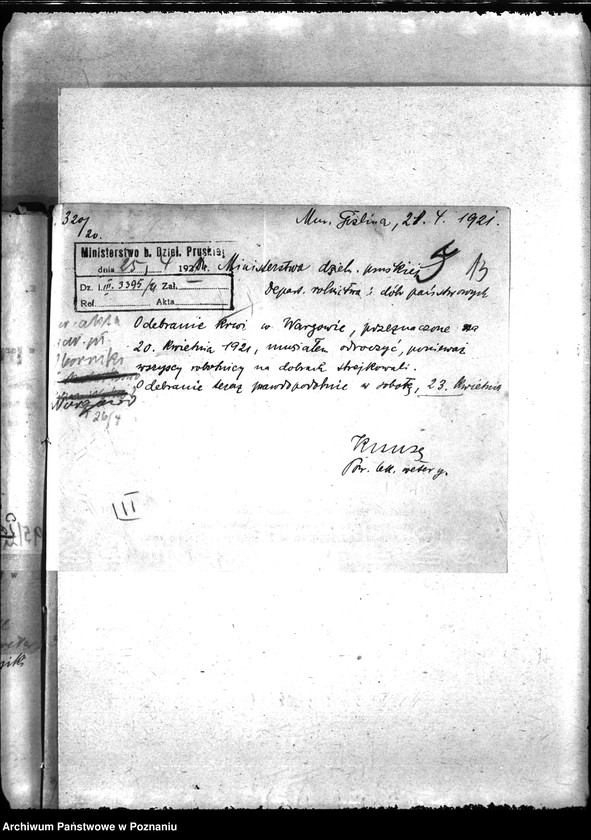 320/
20.
Mur. Goślina, 21. 4. 1921.
Ministerstwo b. Dziel. Pruskiej
dnia 25. 4 192
Dz. I. III. 3395/21 Zał.
Ref. Akta
Ministerstwa dzieln. pruskiej
Depart. rolnictwa i dóbr państwowych
Odebranie krwi w Wargowie, przeznaczone na
20. kwietnia 1921, musiałem odroczyć, ponieważ
wszyscy robotnicy na dobrach strajkowali.
Odebranie teraz prawdopodobnie w sobotę, 23. kwietnia
w. akta
borniki
Wargowo
26/4
Pow. lek. wetery.
III
Archiwum Państwowe w Poznaniu